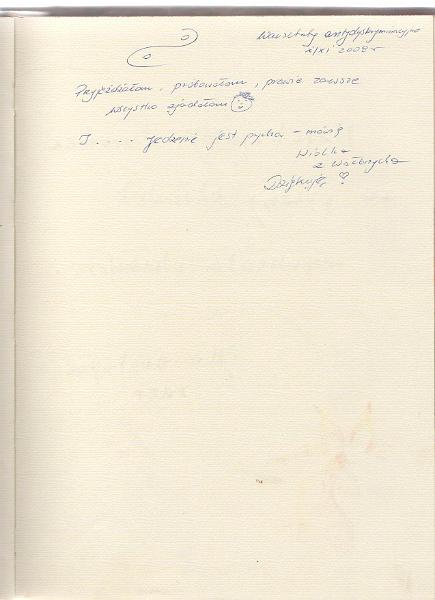 Warsztaty antydyskryminacyjne
X/XI 2008 r
Przyjeżdżałam, próbowałam, prawie zawsze
wszystko zjadałam
I.... jedzenie jest pycha - mówię
Wiolka
z Wałbrzycha
Dziękuję